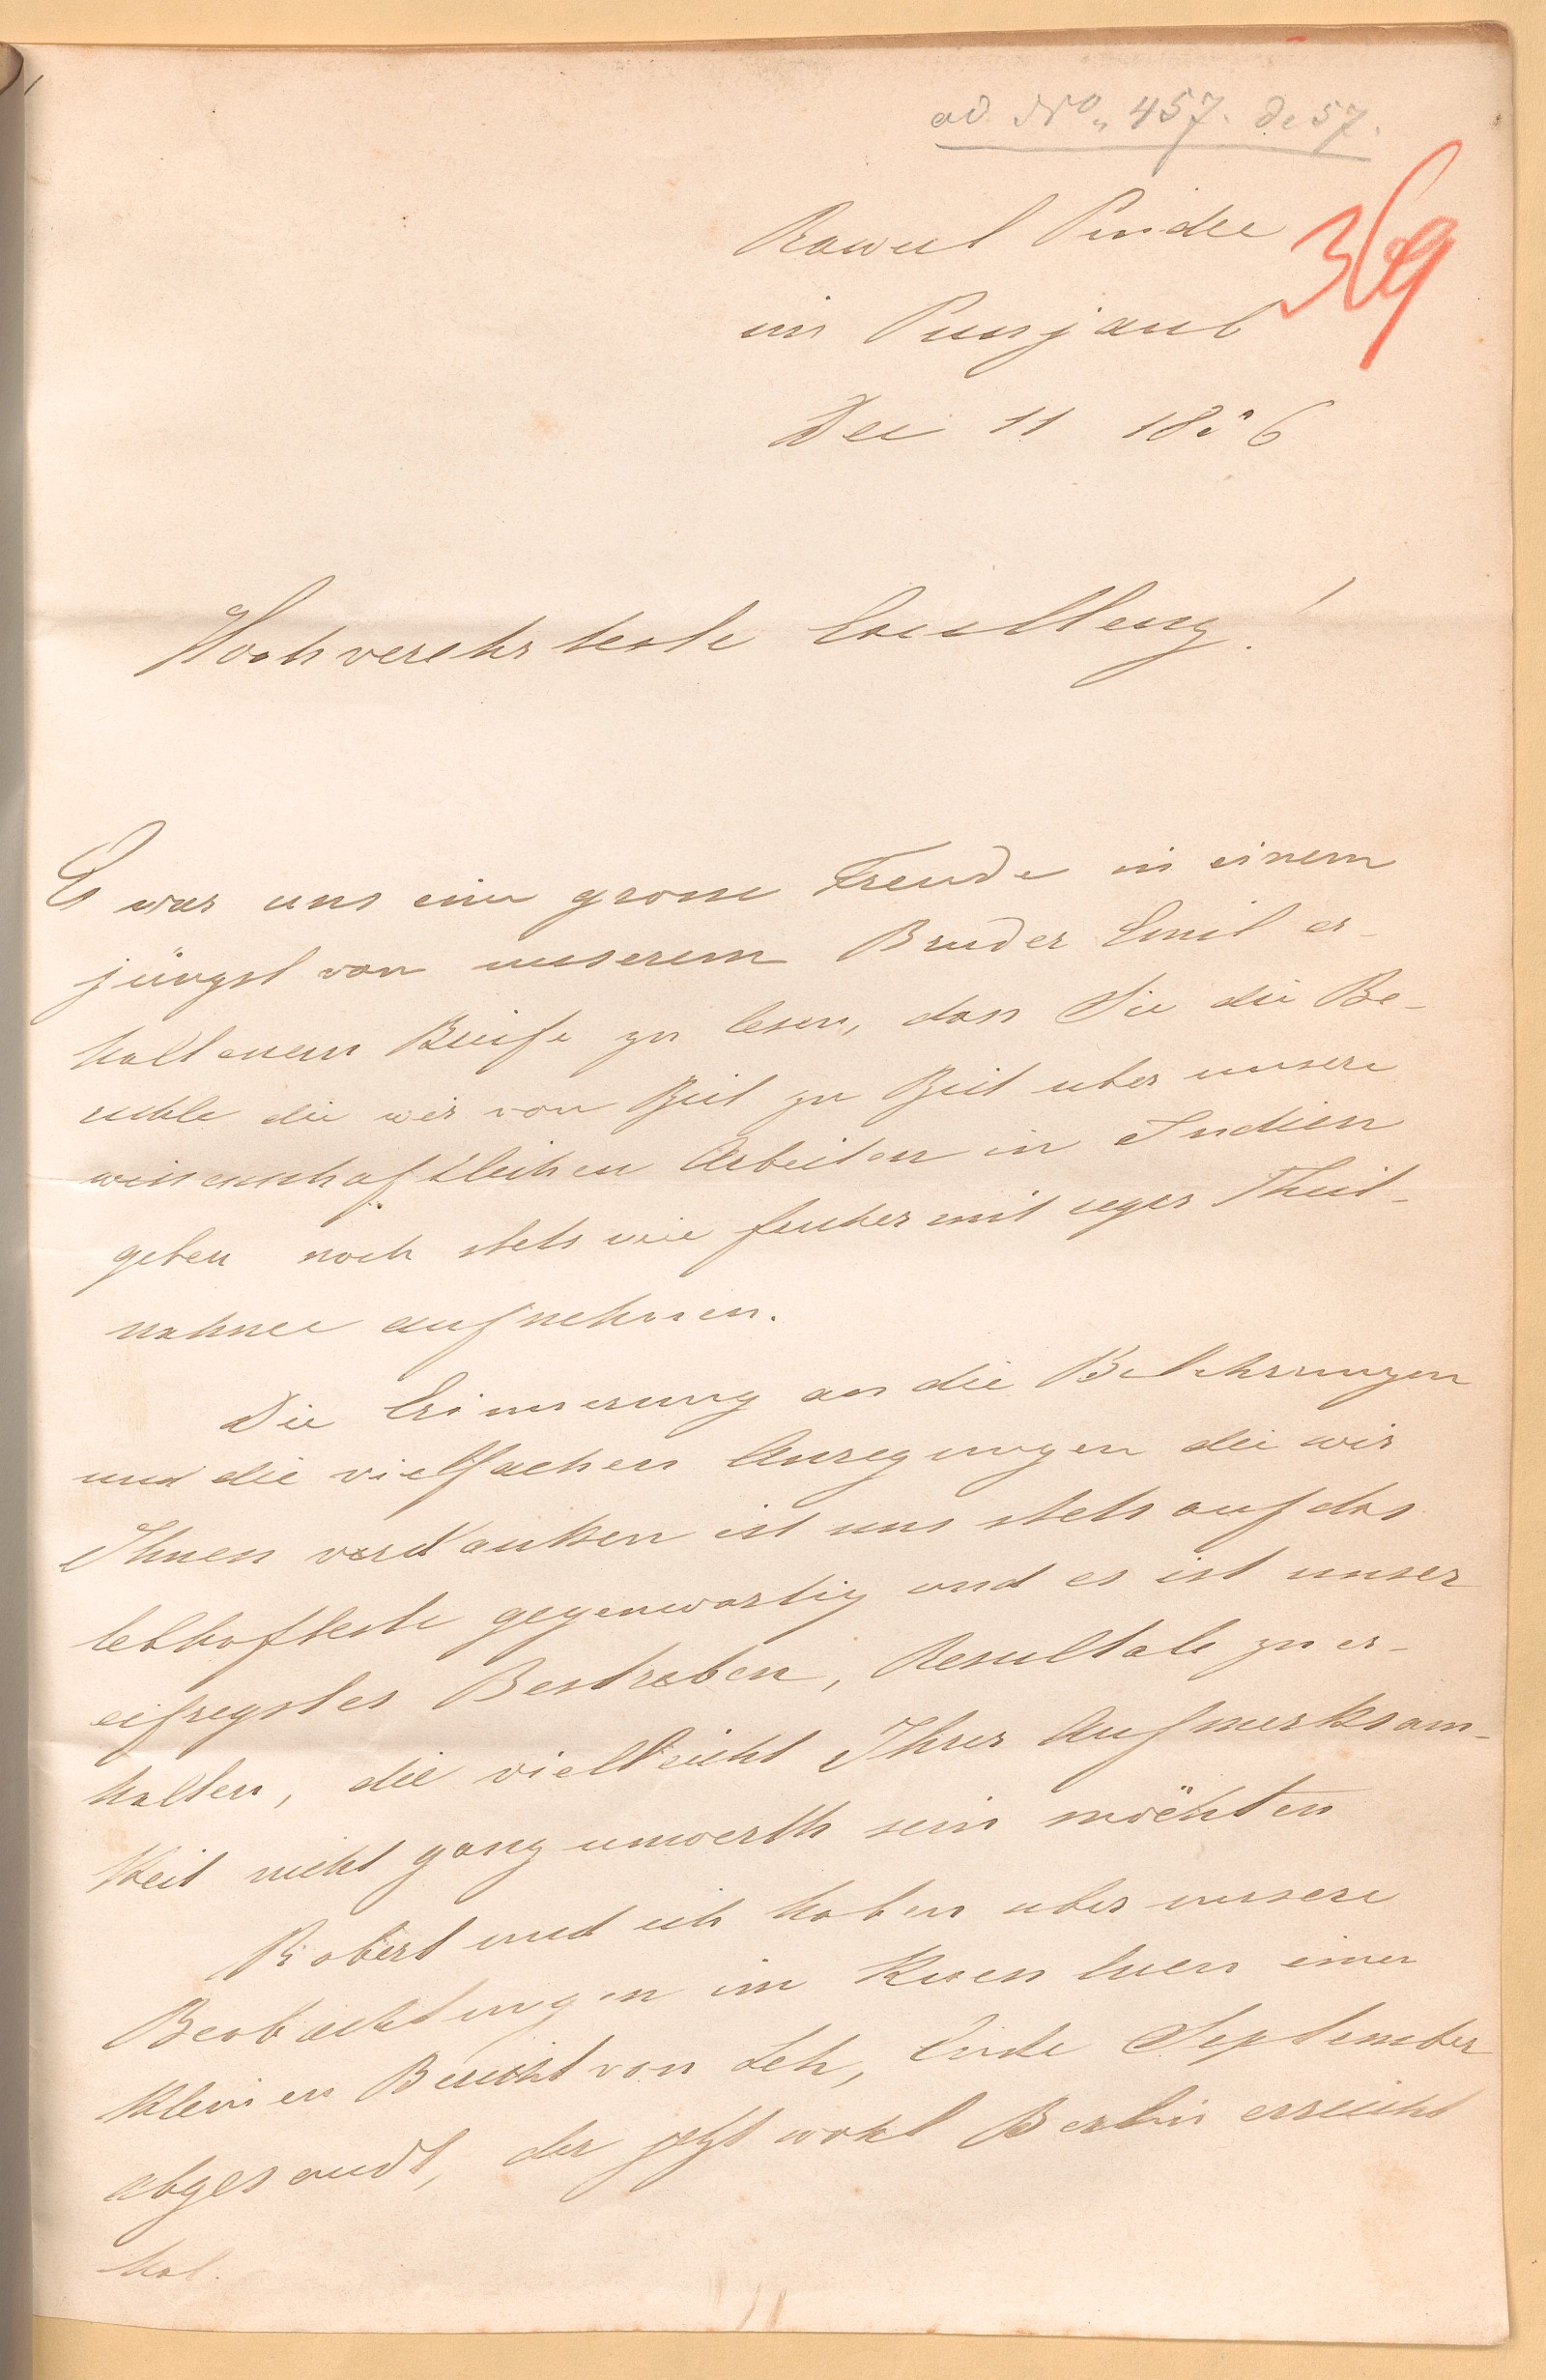 ad No. 457. de 57.
369
Rawul Pindee
im Punjaub
Dec 11 1856
Hochverehrteste Excellenz!
Es war uns eine grosse Freude in einem
jüngst von unserem Bruder Emil er-
haltenem Briefe zu lesen, dass Sie die Be-
richte die wir von Zeit zu Zeit uber unsere
wissenschaftlichen Arbeiten in Indien
geben noch stets wie fruher mit reger Theil-
nahme aufnehmen.
Die Erinnerung an die Belehrungen
und die vielfachen Anregungen die wir
Ihnen verdanken ist uns stets auf das
lebhafteste gegenwartig und es ist unser
eifrigstes Bestreben, Resultate zu er-
halten, die vielleicht Ihrer Aufmerksam-
keit nicht ganz unwerth sein möchten
Robert und ich haben uber unsere
Beobachtungen im Kuen luen einen
kleinen Bericht von Leh, Ende September
abgesandt, der jetzt wohl Berlin erreicht
hat.